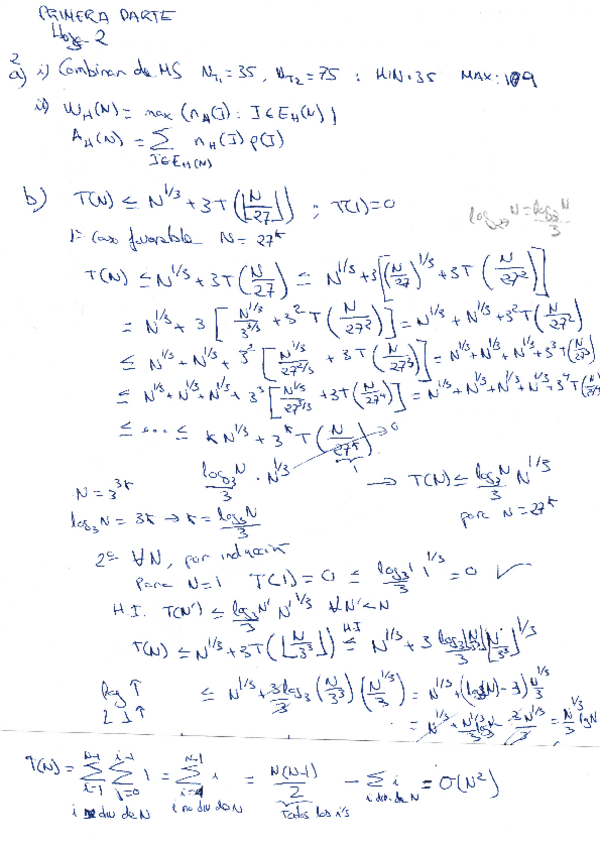 PRIMERA PARTE
Hoja 2
2
a) i) Combinar de MS N_T1 = 35, N_T2 = 75 : MIN: 35 MAX: 109
ii) W_H(N) = max (n_H(I) : I ∈ E_H(N))
A_H(N) = Σ_{I∈E_H(N)} n_H(I) p(I)
b) T(N) ≤ N^{1/3} + 3T(⌊N/27⌋) ; T(1)=0
log_27 N = log_3 N / 3
1º caso favorable N = 27^k
T(N) ≤ N^{1/3} + 3T(N/27) ≤ N^{1/3} + 3[(N/27)^{1/3} + 3T(N/27²)]
= N^{1/3} + 3[N^{1/3}/3^{3/3} + 3²T(N/27²)] = N^{1/3} + N^{1/3} + 3²T(N/27²)
≤ N^{1/3} + N^{1/3} + 3²[N^{1/3}/27^{2/3} + 3T(N/27³)] = N^{1/3} + N^{1/3} + N^{1/3} + 3³T(N/27³)
≤ N^{1/3} + N^{1/3} + N^{1/3} + 3³[N^{1/3}/27^{3/3} + 3T(N/27⁴)] = N^{1/3} + N^{1/3} + N^{1/3} + N^{1/3} + 3⁴T(N/27⁴)
≤ ... ≤ kN^{1/3} + 3^k T(N/27^k) → 0
1
N = 3^{3k} log_3 N / 3 · N^{1/3} → T(N) ≤ log_3 N / 3 N^{1/3}
log_3 N = 3k → k = log_3 N / 3 para N = 27^k
2º ∀N, por inducción
para N=1 T(1) = 0 ≤ log_3 1 / 3 1^{1/3} = 0 ✓
H.I. T(N') ≤ log_3 N' / 3 N'^{1/3} ∀N' < N
T(N) ≤ N^{1/3} + 3T(⌊N/3³⌋) ≤ H.I N^{1/3} + 3 log_3⌊N/3³⌋ / 3 ⌊N/3³⌋^{1/3}
log ↑
⌊ ⌋ ↑
≤ N^{1/3} + 3/3 log_3 (N/3³) (N^{1/3}/3) = N^{1/3} + (log_3(N) - 3) N^{1/3}/3
= N^{1/3}/3 log N
T(N) = Σ_{i=1}^{N-1} Σ_{j=0}^{i-1} 1 = Σ_{i=1}^{N-1} i = N(N-1)/2 - Σ i = O(N²)
i no div de N i no div de N Todos los i's i div. de N